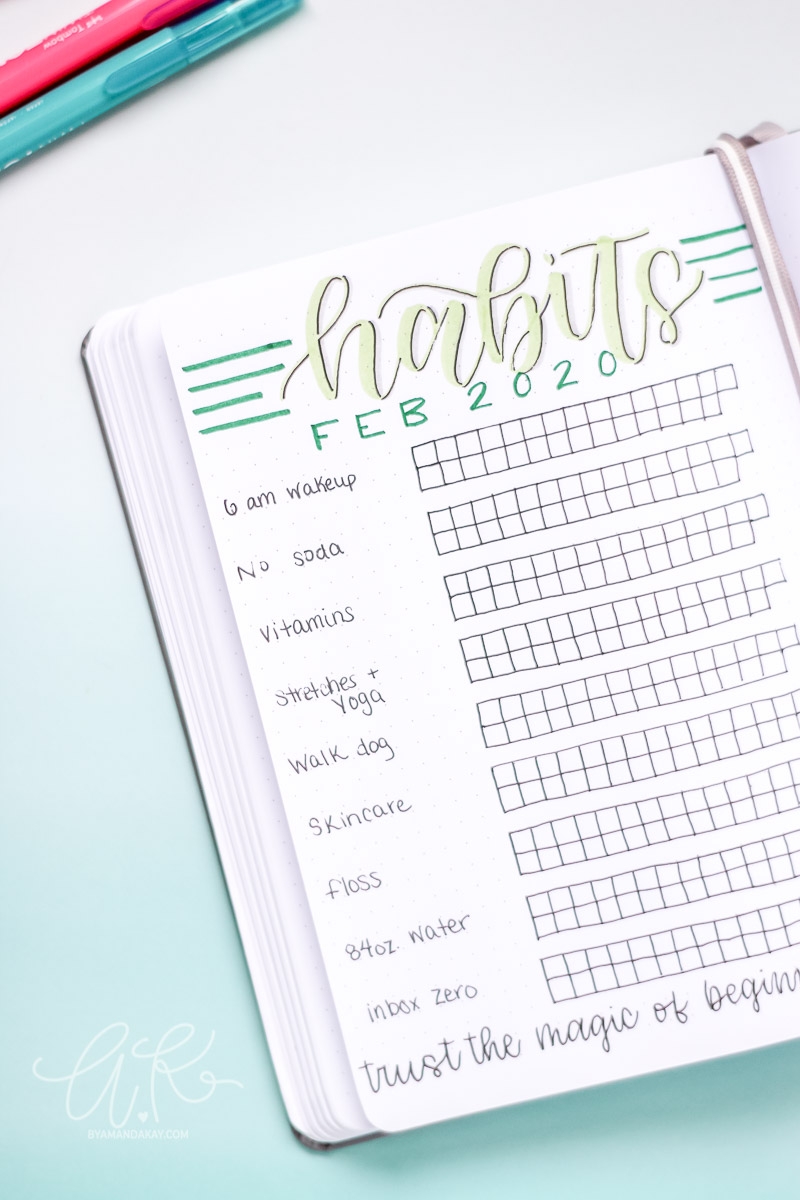 Tombow
habits
FEB 2020
6 am wakeup
No soda
Vitamins
Stretches +
Yoga
Walk dog
Skincare
floss
84oz. water
inbox zero
trust the magic of beginn
a.K
BYAMANDAKAY.COM